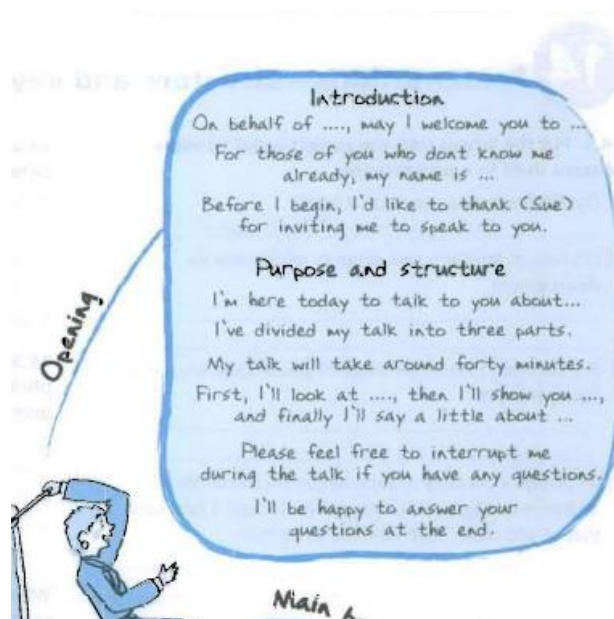 14
Introduction
On behalf of ...., may I welcome you to ...
For those of you who dont know me
already, my name is ...
Before I begin, I'd like to thank (Sue)
for inviting me to speak to you.
Purpose and structure
I'm here today to talk to you about...
I've divided my talk into three parts.
My talk will take around forty minutes.
First, I'll look at ...., then I'll show you ....,
and finally I'll say a little about ...
Please feel free to interrupt me
during the talk if you have any questions.
I'll be happy to answer your
questions at the end.
Opening
Main